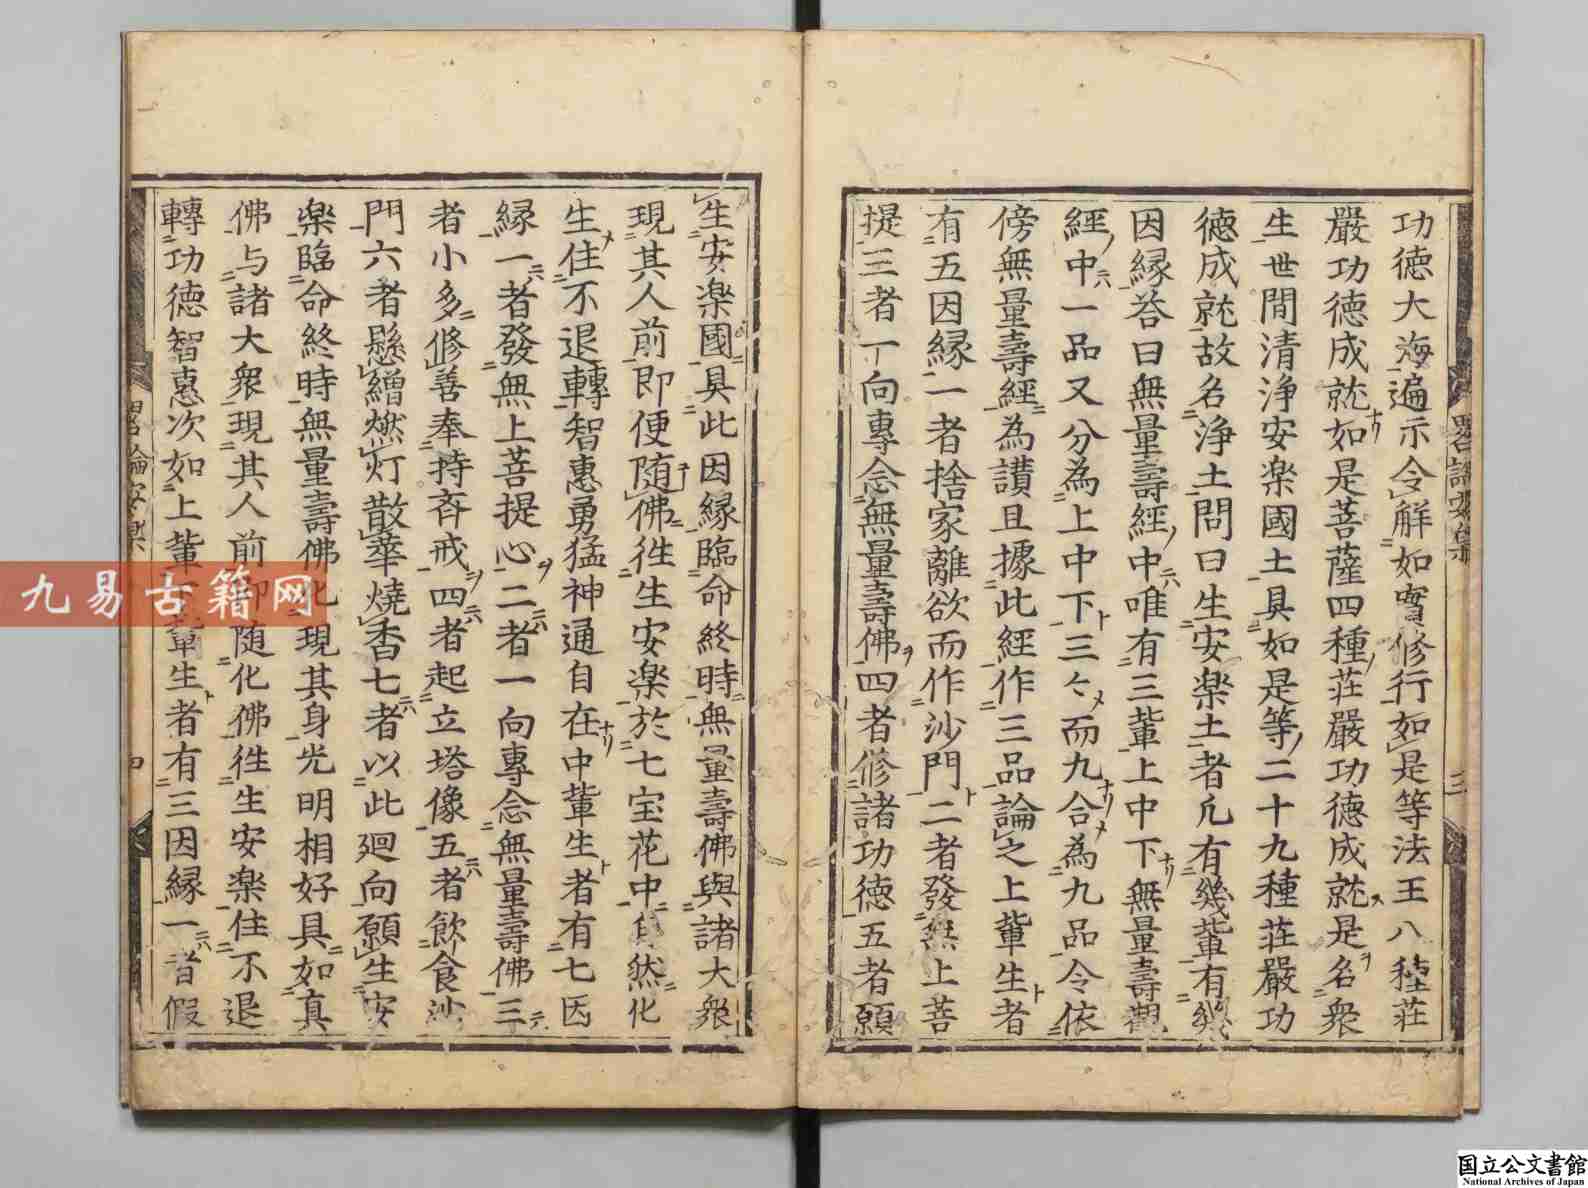 功德大海遍示令解如實修行如是等法王八種莊
嚴功德成就如是菩薩四種莊嚴功德成就是名衆
生世間清浄安楽國土具如是等二十九種莊嚴功
德成就故名浄土問曰生安楽土者凢有幾軰有幾
因縁荅曰無量壽經中唯有三軰上中下無量壽觀
經中一品又分為上中下三々而九合為九品今依
傍無量壽經為讃且據此經作三品論之上軰生者
有五因縁一者捨家離欲而作沙門二者發無上菩
提三者一向專念無量壽佛四者修諸功德五者願
生安楽國具此因縁臨命終時無量壽佛與諸大衆
現其人前即便随佛徃生安楽於七宝花中自然化
生住不退轉智惠勇猛神通自在中軰生者有七因
縁一者發無上菩提心二者一向專念無量壽佛三
者小多修善奉持斉戒四者起立塔像五者飲食沙
門六者懸繒燃灯散華燒香七者以此廻向願生安
楽臨命終時無量壽佛化現其身光明相好具如真
佛与諸大衆現其人前即随化佛徃生安楽住不退
轉功德智惠次如上軰下軰生者有三因縁一者假
畧論安楽
三
四
九易古籍网
国立公文書館
National Archives of Japan